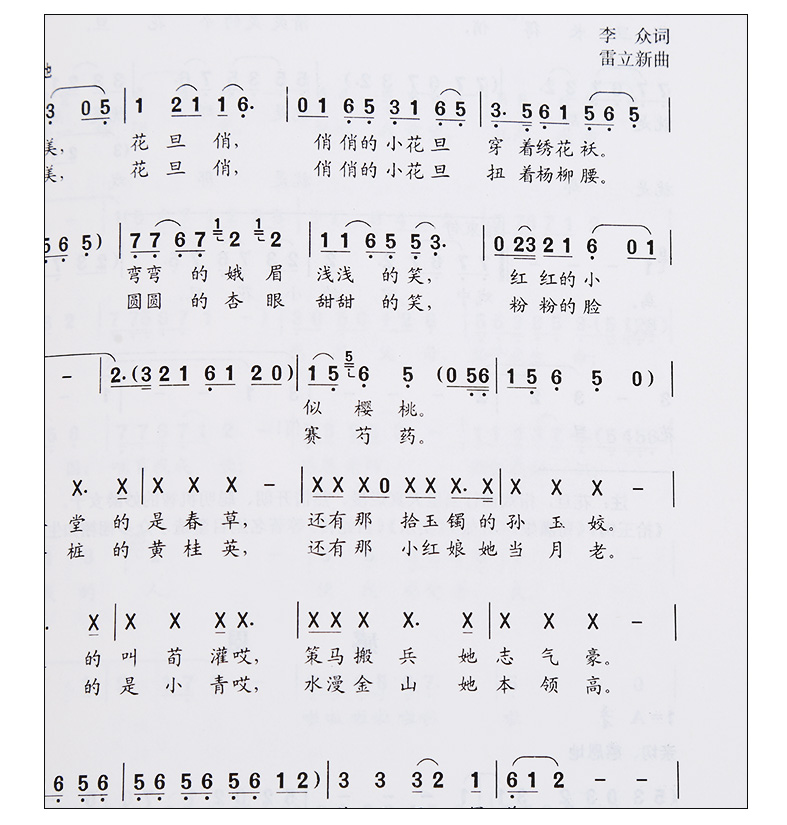 李 众词
雷立新曲
3 0 5 | 1 2 1 1 6. | 0 1 6 5 3 1 6 5 | 3. 5 6 1 5 6 5 |
美, 花 旦 俏, 俏 俏的 小花 旦 穿 着绣花 袄。
美, 花 旦 俏, 俏 俏的 小花 旦 扭 着杨柳 腰。
5 6 5) | 7 7 6 7 1 2 2 | 1 1 6 5 5 3. | 0 23 2 1 6 0 1 |
弯弯 的 娥 眉 浅浅 的 笑, 红 红的 小
圆圆 的 杏 眼 甜甜 的 笑, 粉 粉的 脸
– | 2. (3 2 1 6 1 2 0) | 1 5 5 6 5 (0 56 | 1 5 6 5 0) |
似 樱 桃。
赛 芍 药。
X. X | X X X X – | X X X 0 X X X. X | X X X – |
堂 的 是 春 草, 还 有 那 拾 玉 镯 的 孙 玉 姣。
桩 的 黄 桂 英, 还 有 那 小 红 娘 她 当 月 老。
X | X X X X. | X X X X. X | X X X – |
的 叫 荀 灌 哎, 策 马 搬 兵 她 志 气 豪。
的 是 小 青 哎, 水 漫 金 山 她 本 领 高。
6 5 6 | 5 6 5 6 5 6 1 2) | 3 3 3 2 1 | 6 1 2 – – |